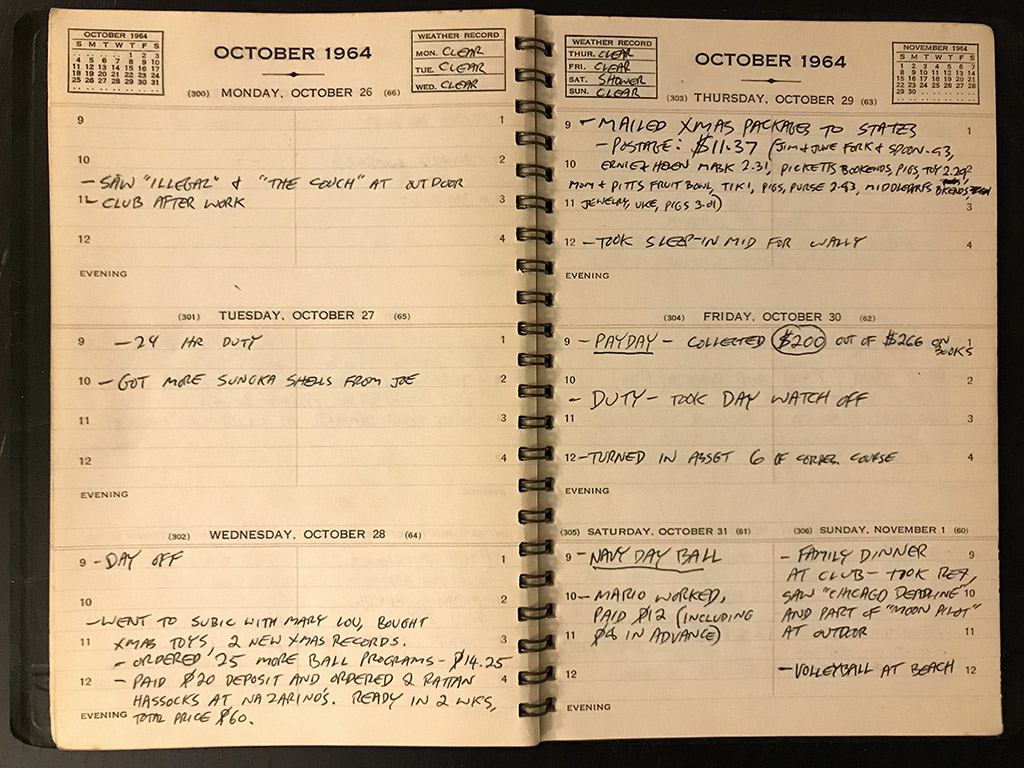 OCTOBER 1964
S M T W T F S
1 2 3
4 5 6 7 8 9 10
11 12 13 14 15 16 17
18 19 20 21 22 23 24
25 26 27 28 29 30 31
OCTOBER 1964
WEATHER RECORD
MON. CLEAR
TUE. CLEAR
WED. CLEAR
(300) MONDAY, OCTOBER 26 (66)
9 1
10 2
- SAW "ILLEGAL" & "THE COUCH" AT OUTDOOR
11 - CLUB AFTER WORK 3
12 4
EVENING
(301) TUESDAY, OCTOBER 27 (65)
9 - 24 HR DUTY 1
10 - GOT MORE SUNGKA SHELLS FROM JOE 2
11 3
12 4
EVENING
(302) WEDNESDAY, OCTOBER 28 (64)
9 - DAY OFF 1
10 2
- WENT TO SUBIC WITH MARY LOU, BOUGHT
11 XMAS TOYS, 2 NEW XMAS RECORDS. 3
- ORDERED 25 MORE BALL PROGRAMS - $14.25
12 - PAID $20 DEPOSIT AND ORDERED 2 RATTAN 4
HASSOCKS AT NAZARINO'S. READY IN 2 WKS,
EVENING TOTAL PRICE $60.
WEATHER RECORD
THUR. CLEAR
FRI. CLEAR
SAT. SHOWER
SUN. CLEAR
OCTOBER 1964
NOVEMBER 1964
S M T W T F S
1 2 3 4 5 6 7
8 9 10 11 12 13 14
15 16 17 18 19 20 21
22 23 24 25 26 27 28
29 30
(303) THURSDAY, OCTOBER 29 (63)
9 - MAILED XMAS PACKAGES TO STATES 1
- POSTAGE: $11.37 (JIM & JUNE FORK & SPOON .93,
10 ERNIE & HELEN MASK 2.31, PICKETTS BOOKENDS, PIGS, TOY 2.29
MOM & PITTS FRUIT BOWL, TIKI, PIGS, PURSE 2.93, MIDDLETONS
11 JEWELRY, UKE, PIGS 3.01) 3
12 - TOOK SLEEP-IN MID FOR WALLY 4
EVENING
(304) FRIDAY, OCTOBER 30 (62)
9 - PAYDAY - COLLECTED $200 OUT OF $266 ON BOOKS 1
10 2
- DUTY - TOOK DAY WATCH OFF
11 3
12 - TURNED IN ASSGT 6 OF CORRES. COURSE 4
EVENING
(305) SATURDAY, OCTOBER 31 (61)
9 - NAVY DAY BALL
10 - MARIO WORKED,
PAID $12 (INCLUDING
11 $4 IN ADVANCE)
12
EVENING
(306) SUNDAY, NOVEMBER 1 (60)
- FAMILY DINNER 9
AT CLUB - TOOK REX,
SAW "CHICAGO DEADLINE" 10
AND PART OF "MOON PILOT"
AT OUTDOOR 11
- VOLLEYBALL AT BEACH 12